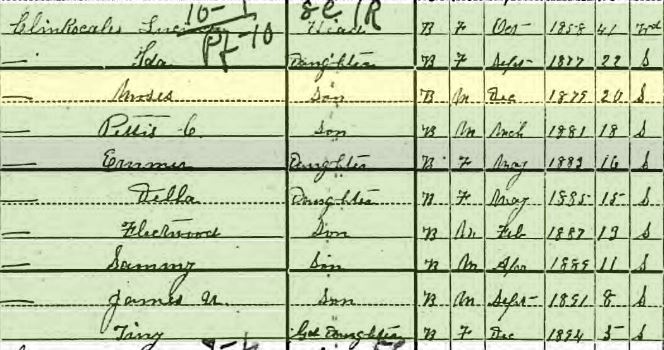 10-1 8C 1R
Clinkscales Head B F Oct 1858 41 Wd
PF-10
— Ida Daughter B F Sept 1877 22 S
— Moses Son B M Dec 1879 20 S
— Pettis C. Son B M Mch 1881 18 S
— Emmer Daughter B F May 1883 16 S
— Della Daughter B F May 1885 15 S
— Fleetwood Son B M Feb 1887 13 S
— Sammy Son B M Apr 1889 11 S
— James N. Son B M Sept 1891 8 S
— Tiny Gd Daughter B F Dec 1894 5 S